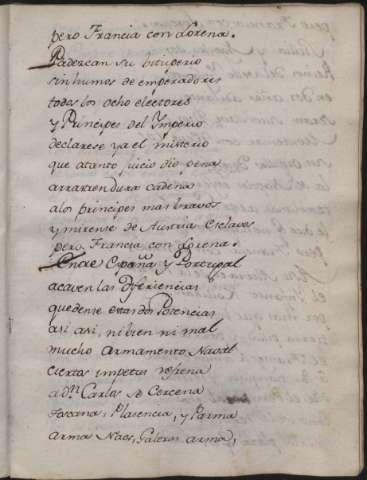 pero Francia con Lorena.
Padezcan su bituperio
sin humos de emperadores
todos los ocho electores
y Principes del Imperio
declarese ya el misterio
que atanto juicio dio pena
arrastren dura cadena
alos principes mas bravos
y mirense de Austria Esclavos
pero Francia con Lorena.
Entre España y Portugal
acaven las Diferiencias
quedense estas dos Potencias
asi asi, ni bien ni mal
mucho Armamento Naval
ciertos impetus
a Dn. Carlos se Cercena
Toscana, Plasencia, y Parma
arma Naos, Galeras arma,